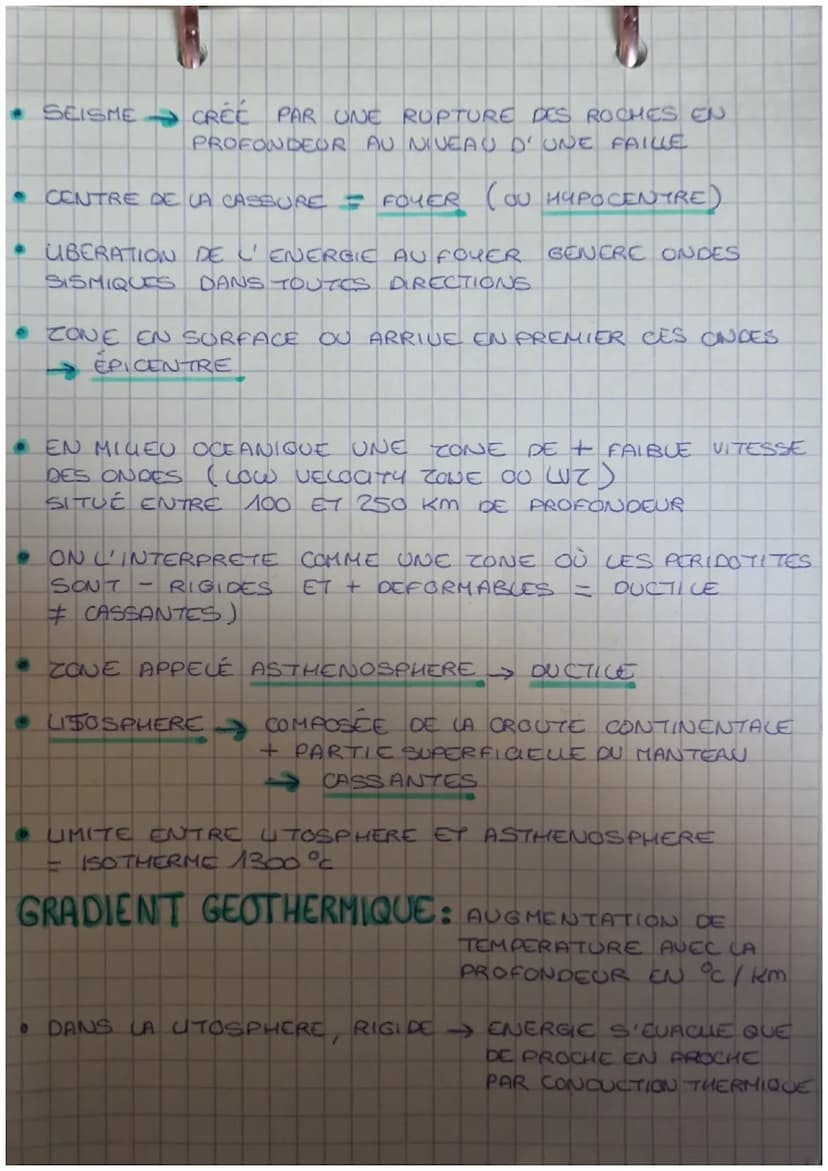 • SEISME → CRÉÉ PAR UNE RUPTURE DES ROCHES EN
PROFONDEUR AU NIVEAU D'UNE FAILLE
• CENTRE DE LA CASSURE = FOYER (OU HYPOCENTRE)
• LIBERATION DE L'ENERGIE AU FOYER GENERE ONDES
SISMIQUES DANS TOUTES DIRECTIONS
• ZONE EN SURFACE OU ARRIVE EN PREMIER CES ONDES
→ ÉPICENTRE
• EN MILIEU OCEANIQUE UNE ZONE DE + FAIBLE VITESSE
DES ONDES (LOW VELOCITY ZONE OU LVZ)
SITUÉ ENTRE 100 ET 250 Km DE PROFONDEUR
• ON L'INTERPRETE COMME UNE ZONE OÙ LES PERIDOTITES
SONT - RIGIDES ET + DEFORMABLES = DUCTILE
≠ CASSANTES)
• ZONE APPELÉ ASTHENOSPHERE → DUCTILE
• LITOSPHERE → COMPOSÉE DE LA CROUTE CONTINENTALE
+ PARTIE SUPERFICIELLE DU MANTEAU
→ CASSANTES
• LIMITE ENTRE LITOSPHERE ET ASTHENOSPHERE
= ISOTHERME 1300°C
GRADIENT GEOTHERMIQUE: AUGMENTATION DE
TEMPERATURE AVEC LA
PROFONDEUR EN °C/Km
• DANS LA LITOSPHERE, RIGIDE → ENERGIE S'EVACUE QUE
DE PROCHE EN PROCHE
PAR CONDUCTION THERMIQUE